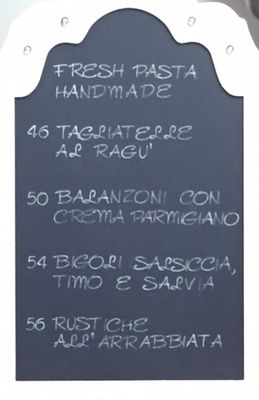 FRESH PASTA
HANDMADE
46 TAGLIATELLE
AL RAGU'
50 BALANZONI CON
CREMA PARMIGIANO
54 BIGOLI SALSICCIA,
TIMO E SALVIA
56 RUSTICHE
ALL'ARRABBIATA